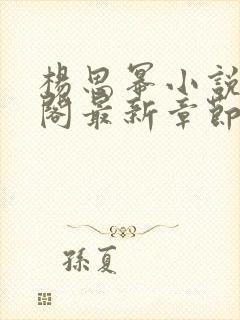 楊思冪小說
閣最新章節
孫夏